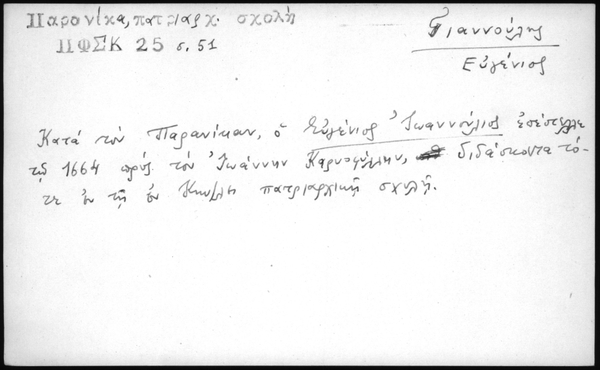 Παρανίκα, πατριαρχ. σχολή
ΠΦΣΚ 25 σ. 51
Γιαννούλης
Εὐγένιος
Κατά τόν Παρανίκαν, ὁ Εὐγένιος Ἰωαννούλιος ἐπέστελλε
τῷ 1664 πρός τόν Ἰωάννην Καρυοφύλλην, διδάσκοντα τό-
τε ἐν τῇ ἐν Κπόλει πατριαρχικῇ σχολῇ.